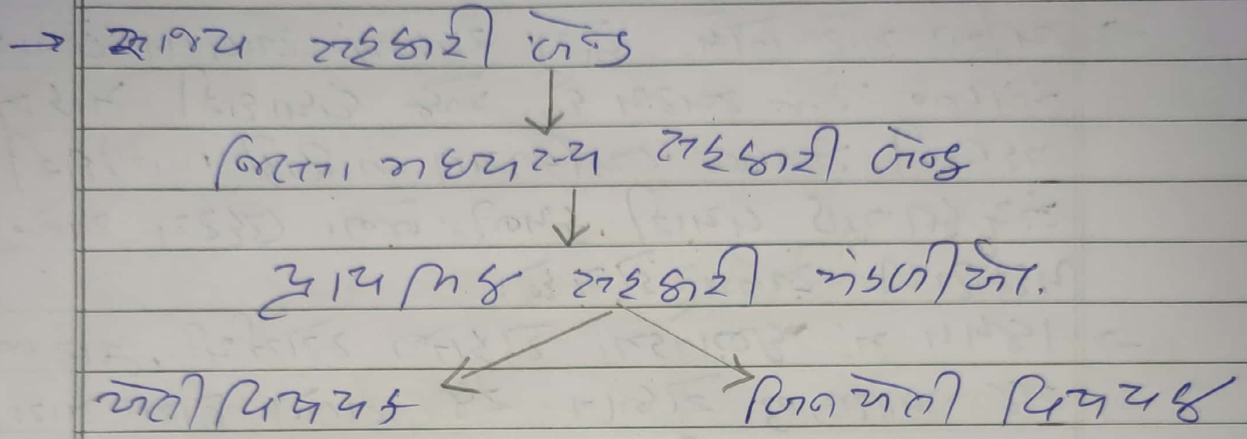 → રાજ્ય સહકારી બેન્ક
જિલ્લા મધ્યસ્થ સહકારી બેન્ક
પ્રાથમિક સહકારી મંડળીઓ.
ખેતી વિષયક બિનખેતી વિષયક